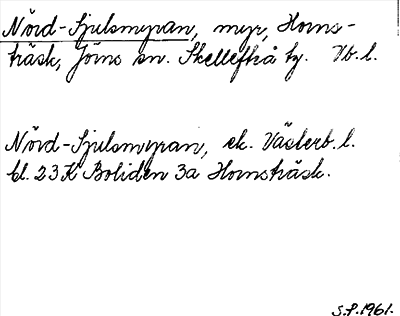 Nörd-Sjulsmyran, myr, Horns-
träsk, Jörns sn. Skellefteå tg. Vb.l.
Nörd-Sjulsmyran, ek. Västerb.l.
bl. 23K Boliden 3a Hornsträsk.
S.P.1961.